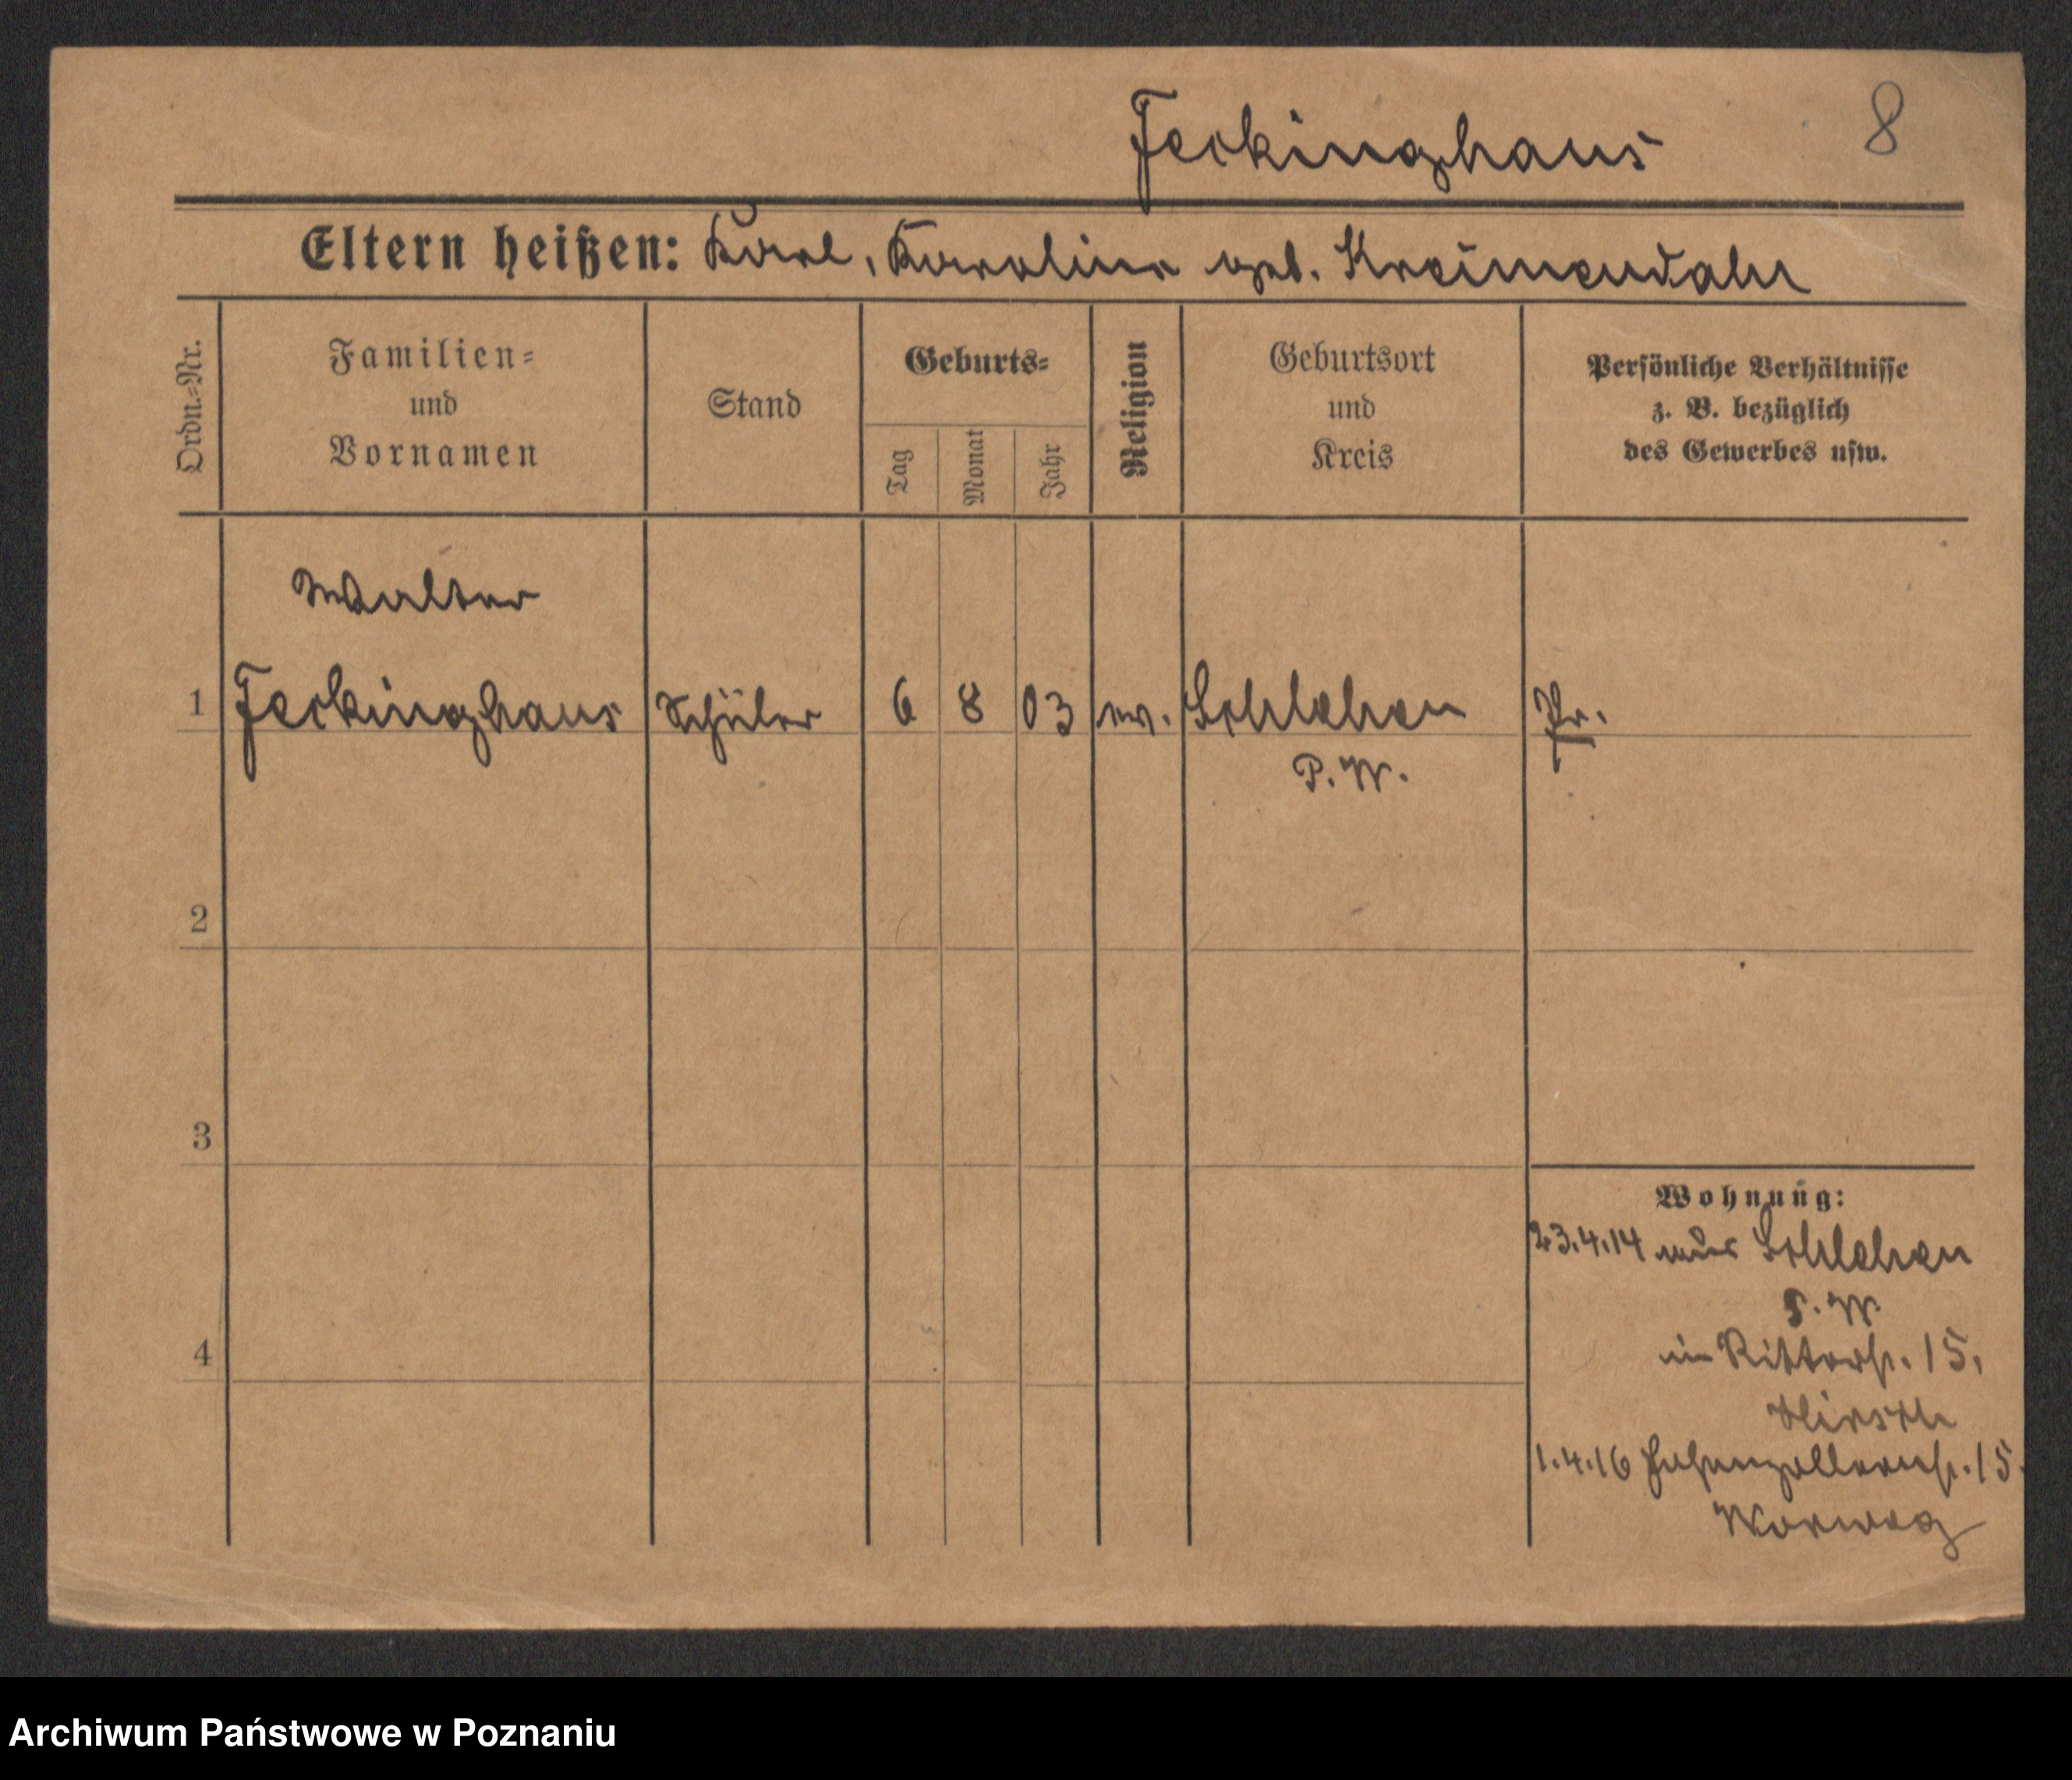 Feckinghaus 8
Eltern heißen: Karl, Karoline geb. Kreimendahl
Ordn.=Nr.
Familien=
und
Vornamen
Stand
Geburts=
Tag
Monat
Jahr
Religion
Geburtsort
und
Kreis
Persönliche Verhältnisse
z. B. bezüglich
des Gewerbes usw.
Walter
1 Feckinghaus Schüler 6 8 03 ev. Schlehen Pr.
P.W.
2
3
4
Wohnung:
23.4.14 aus Schlehen
P.W.
in Ritterstr. 15,
Hirsch
1.4.16 Hohenzollernstr. 15.
Worweg
Archiwum Państwowe w Poznaniu